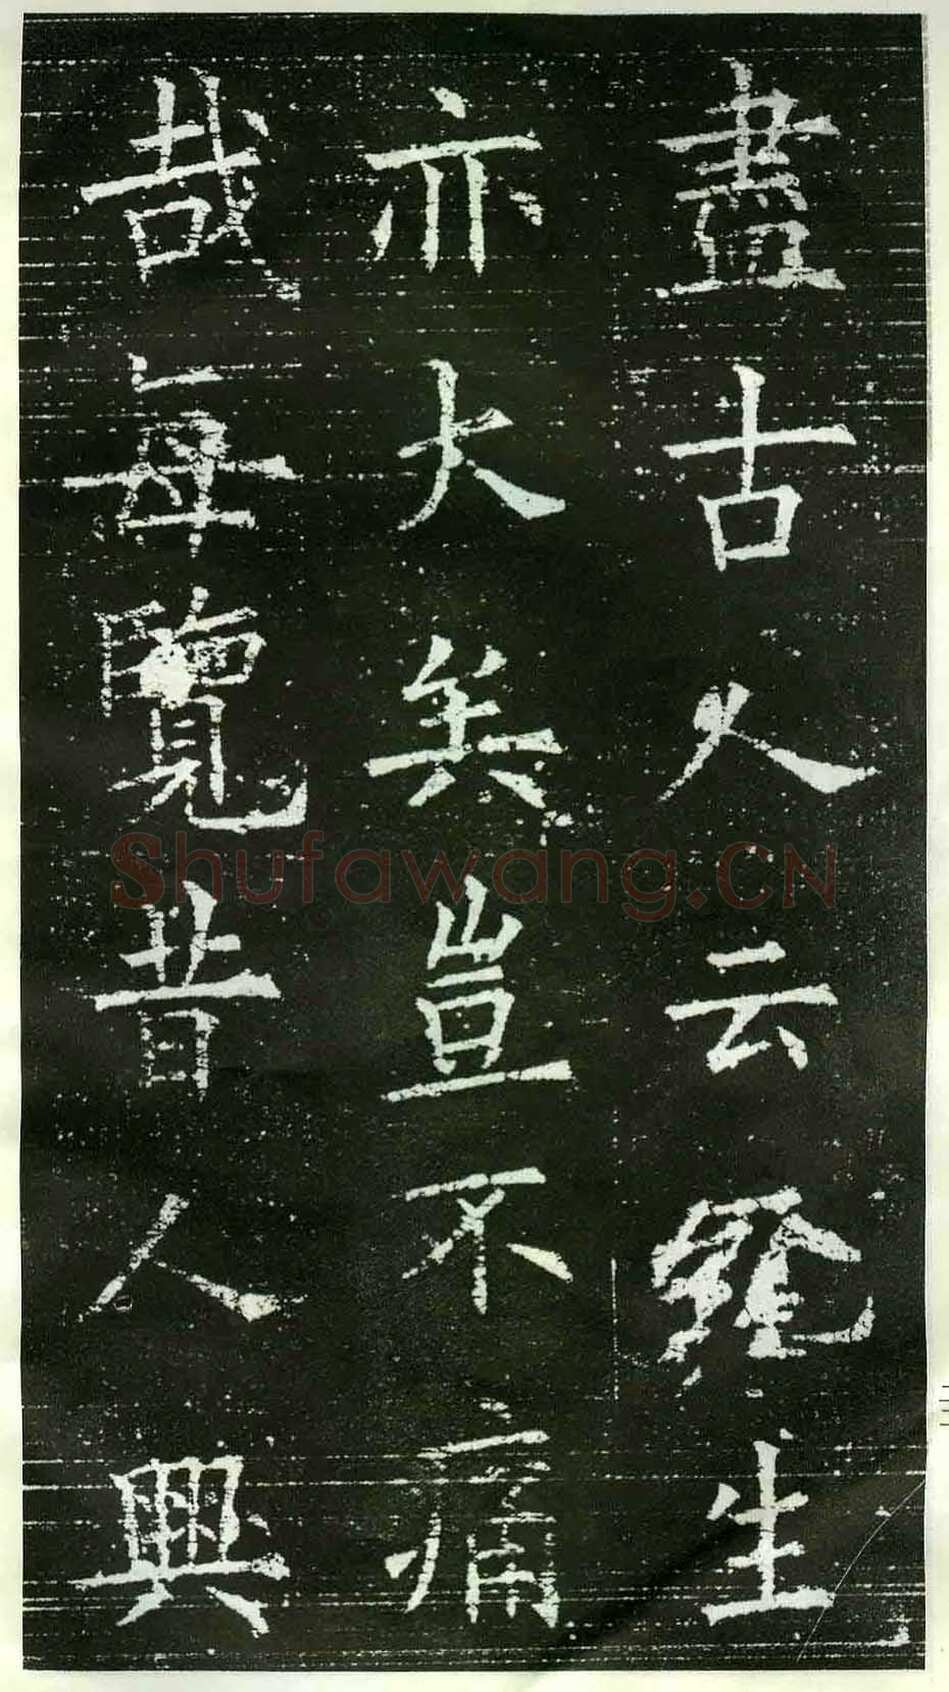 盡古人云生
亦大矣豈不痛
哉每覽昔人興
Shufawang.CN